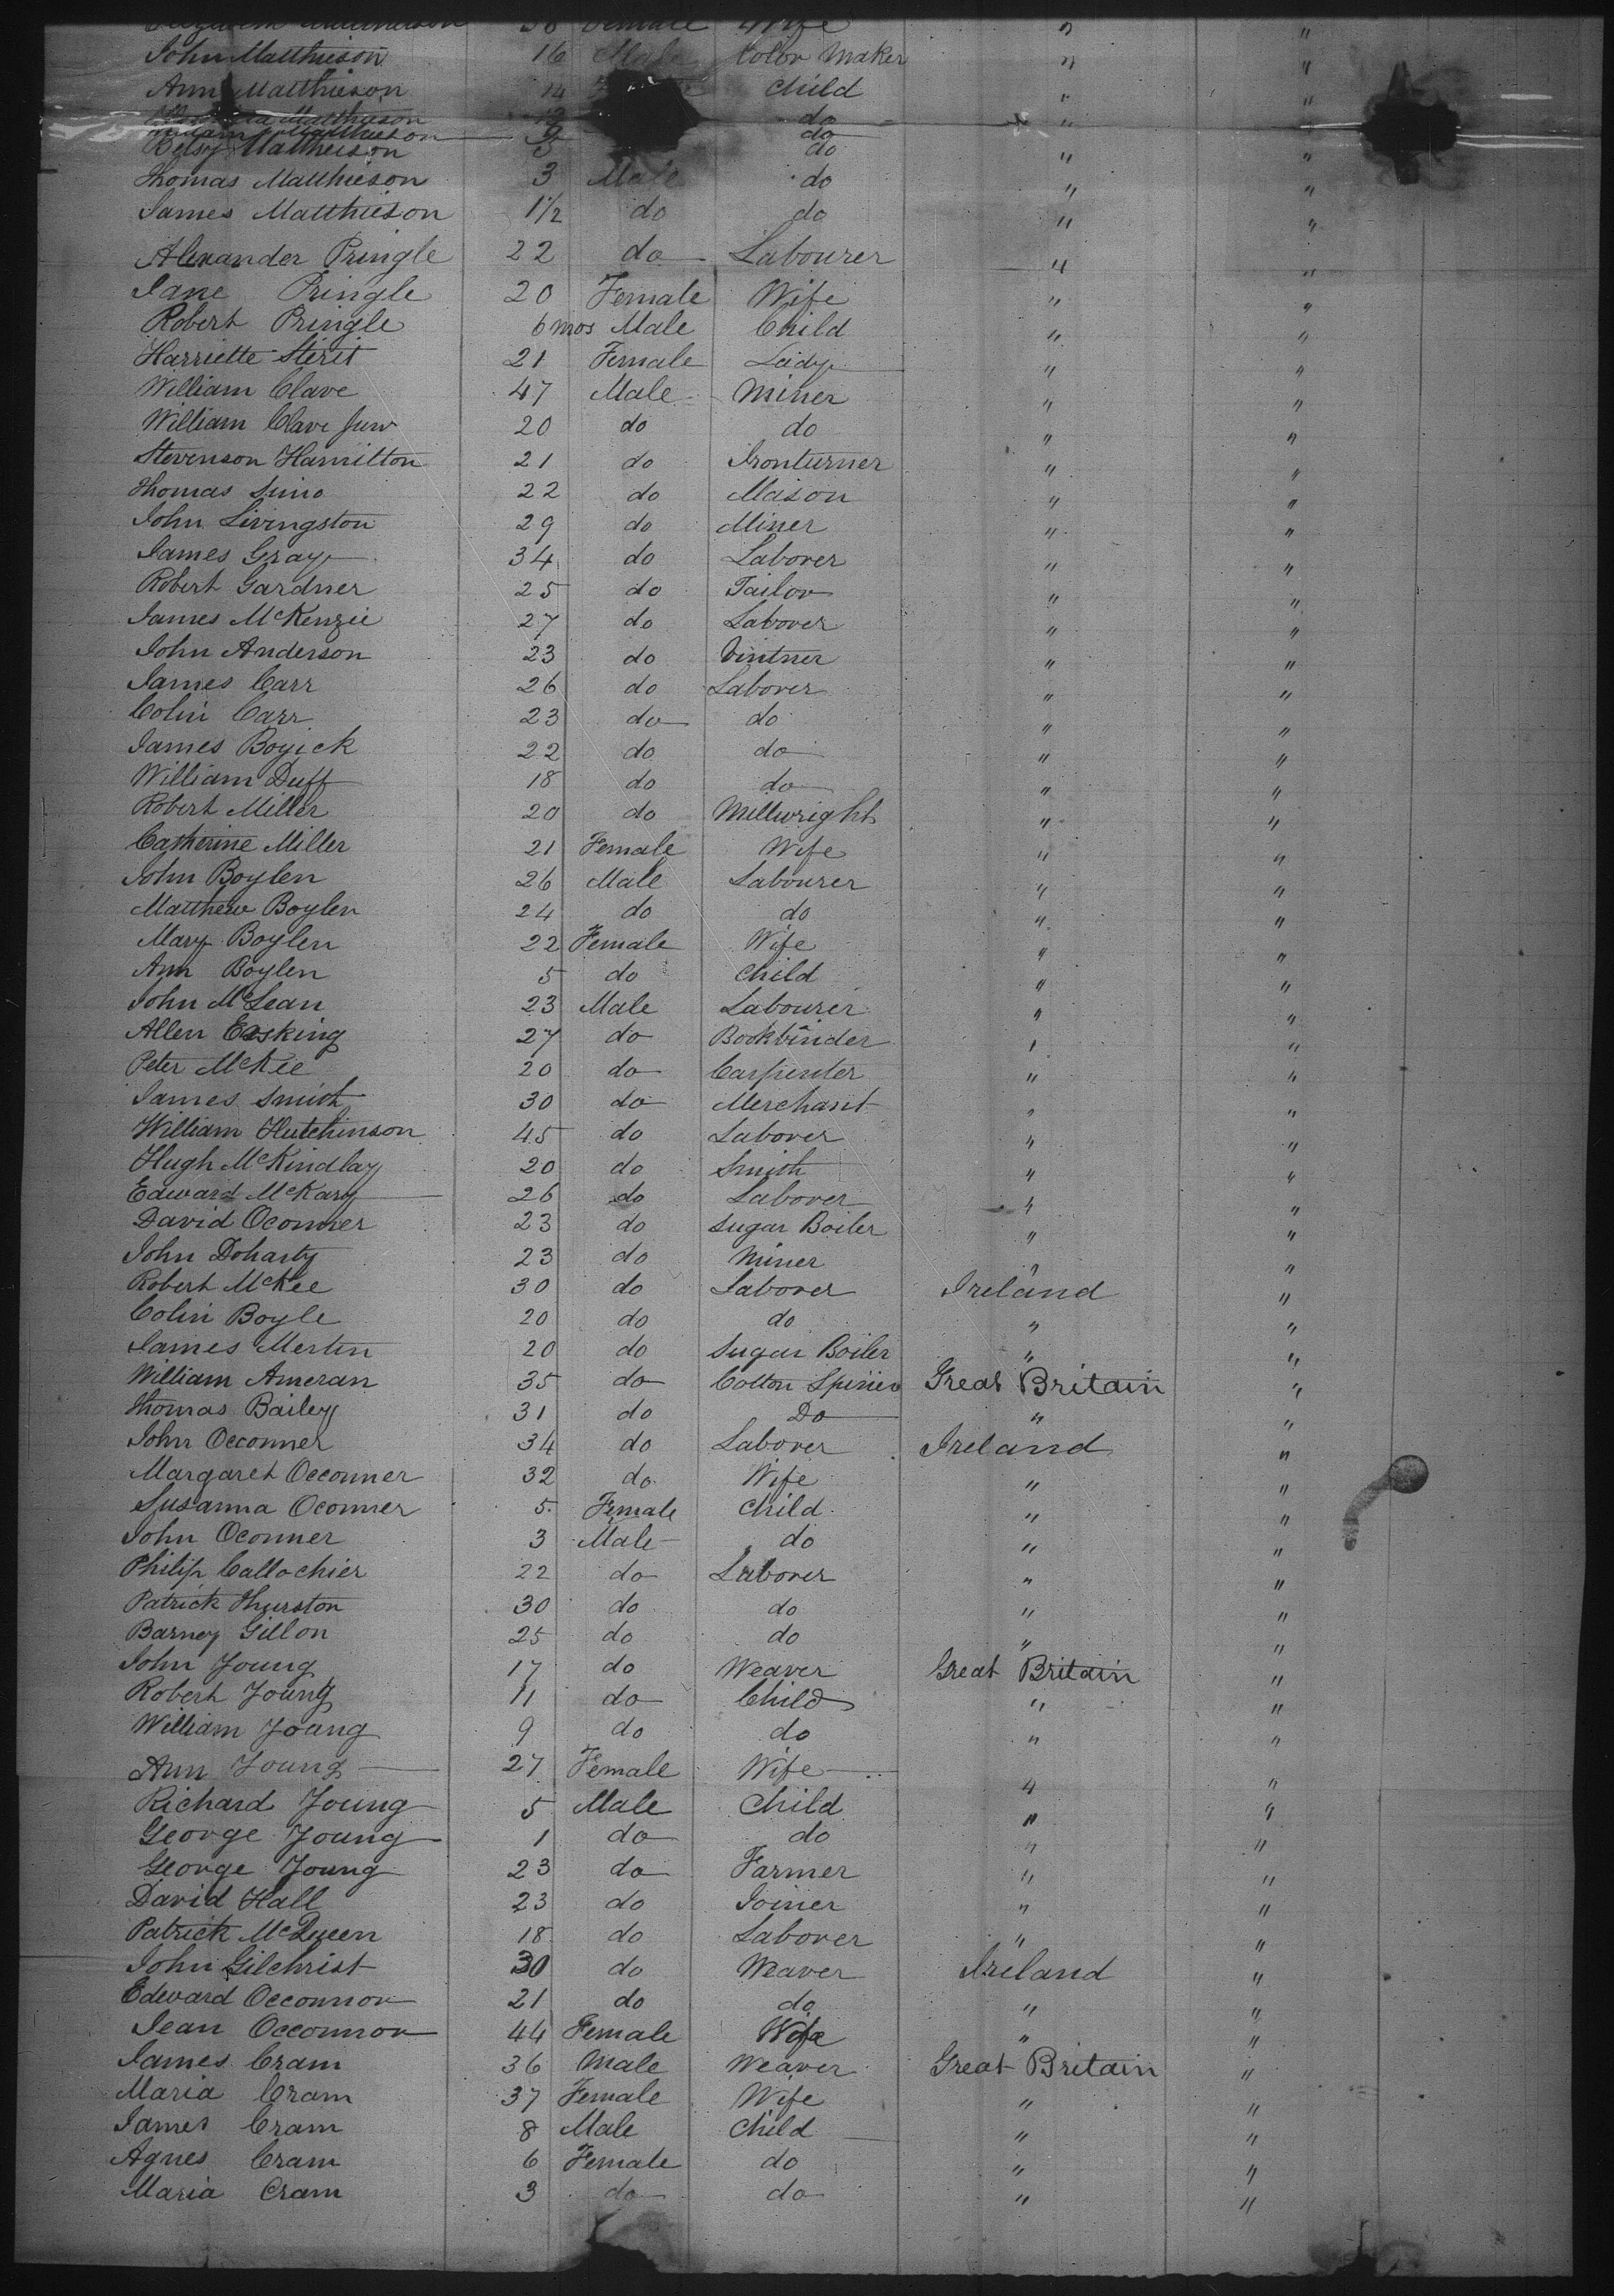 Elizabeth Matthieson 38 Female Wife " "
John Matthieson 16 Male Color Maker " "
Ann Matthieson 14 Child " "
Matthieson 12 do " "
William Matthieson 9 do
Betsy Mattheison 5 do " "
Thomas Matthieson 3 Male do " "
James Matthieson 1 1/2 do do " "
Alexander Pringle 22 do Labourer " "
Jane Pringle 20 Female Wife " "
Robert Pringle 6 mos Male Child " "
Harriette Sterit 21 Female Lady " "
William Clave 47 Male Miner " "
William Clave Junr 20 do do " "
Stevenson Hamilton 21 do Ironturner " "
Thomas 22 do Mason " "
John Livingston 29 do Miner " "
James Gray 34 do Laborer " "
Robert Gardner 25 do Tailor " "
James McKenzie 27 do Laborer " "
John Anderson 23 do Vintner " "
James Carr 26 do Laborer " "
Colin Carr 23 do do " "
James Boyick 22 do do " "
William Duff 18 do do " "
Robert Miller 20 do Millwright " "
Catherine Miller 21 Female Wife " "
John Boylen 26 Male Labourer " "
Matthew Boylen 24 do do " "
Mary Boylen 22 Female Wife " "
Ann Boylen 5 do Child " "
John McLean 23 Male Labourer " "
Allen Ersking 27 do Bookbinder " "
Peter McKee 20 do Carpenter " "
James Smith 30 do Merchant " "
William Hutchinson 45 do Laborer " "
Hugh McKindlay 20 do Smith " "
Edward McKary 26 do Laborer " "
David Oconner 23 do Sugar Boiler " "
John Doharty 23 do Miner " "
Robert McKee 30 do Laborer Ireland "
Colin Boyle 20 do do " "
James Mertin 20 do Sugar Boiler " "
William Ameran 35 do Cotton Spiner Great Britain "
Thomas Bailey 31 do Do " "
John Occonner 34 do Laborer Ireland "
Margaret Occonner 32 do Wife " "
Susanna Oconner 5 Female Child " "
John Oconner 3 Male do " "
Philip Callochier 22 do Laborer " "
Patrick Thurston 30 do do " "
Barney Gillon 25 do do " "
John Young 17 do Weaver Great Britain "
Robert Young 11 do Child " "
William Young 9 do do " "
Ann Young 27 Female Wife " "
Richard Young 5 Male Child " "
George Young 1 do do " "
George Young 23 do Farmer " "
David Hall 23 do Joiner " "
Patrick McQueen 18 do Laborer " "
John Gilchrist 30 do Weaver Ireland "
Edward Occonnor 21 do do " "
Jean Occonnor 44 Female Wife " "
James Cram 36 Male Weaver Great Britain "
Maria Cram 37 Female Wife " "
James Cram 8 Male Child " "
Agnes Cram 6 Female do " "
Maria Cram 3 do do " "